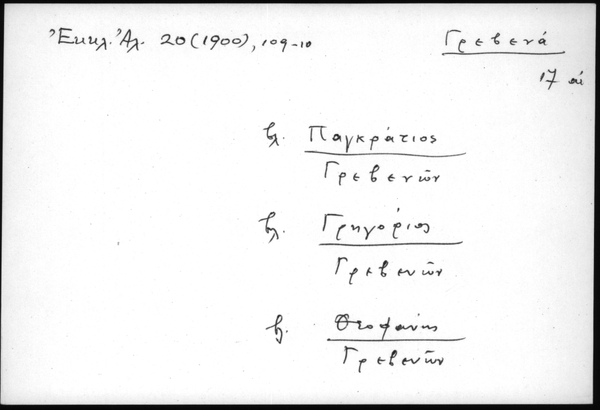 Ἐκκλ. Ἀλ. 20 (1900), 109-10
Γρεβενά
17 αἰ
βλ. Παγκράτιος
Γρεβενῶν
βλ. Γρηγόριος
Γρεβενῶν
βλ. Θεοφάνης
Γρεβενῶν